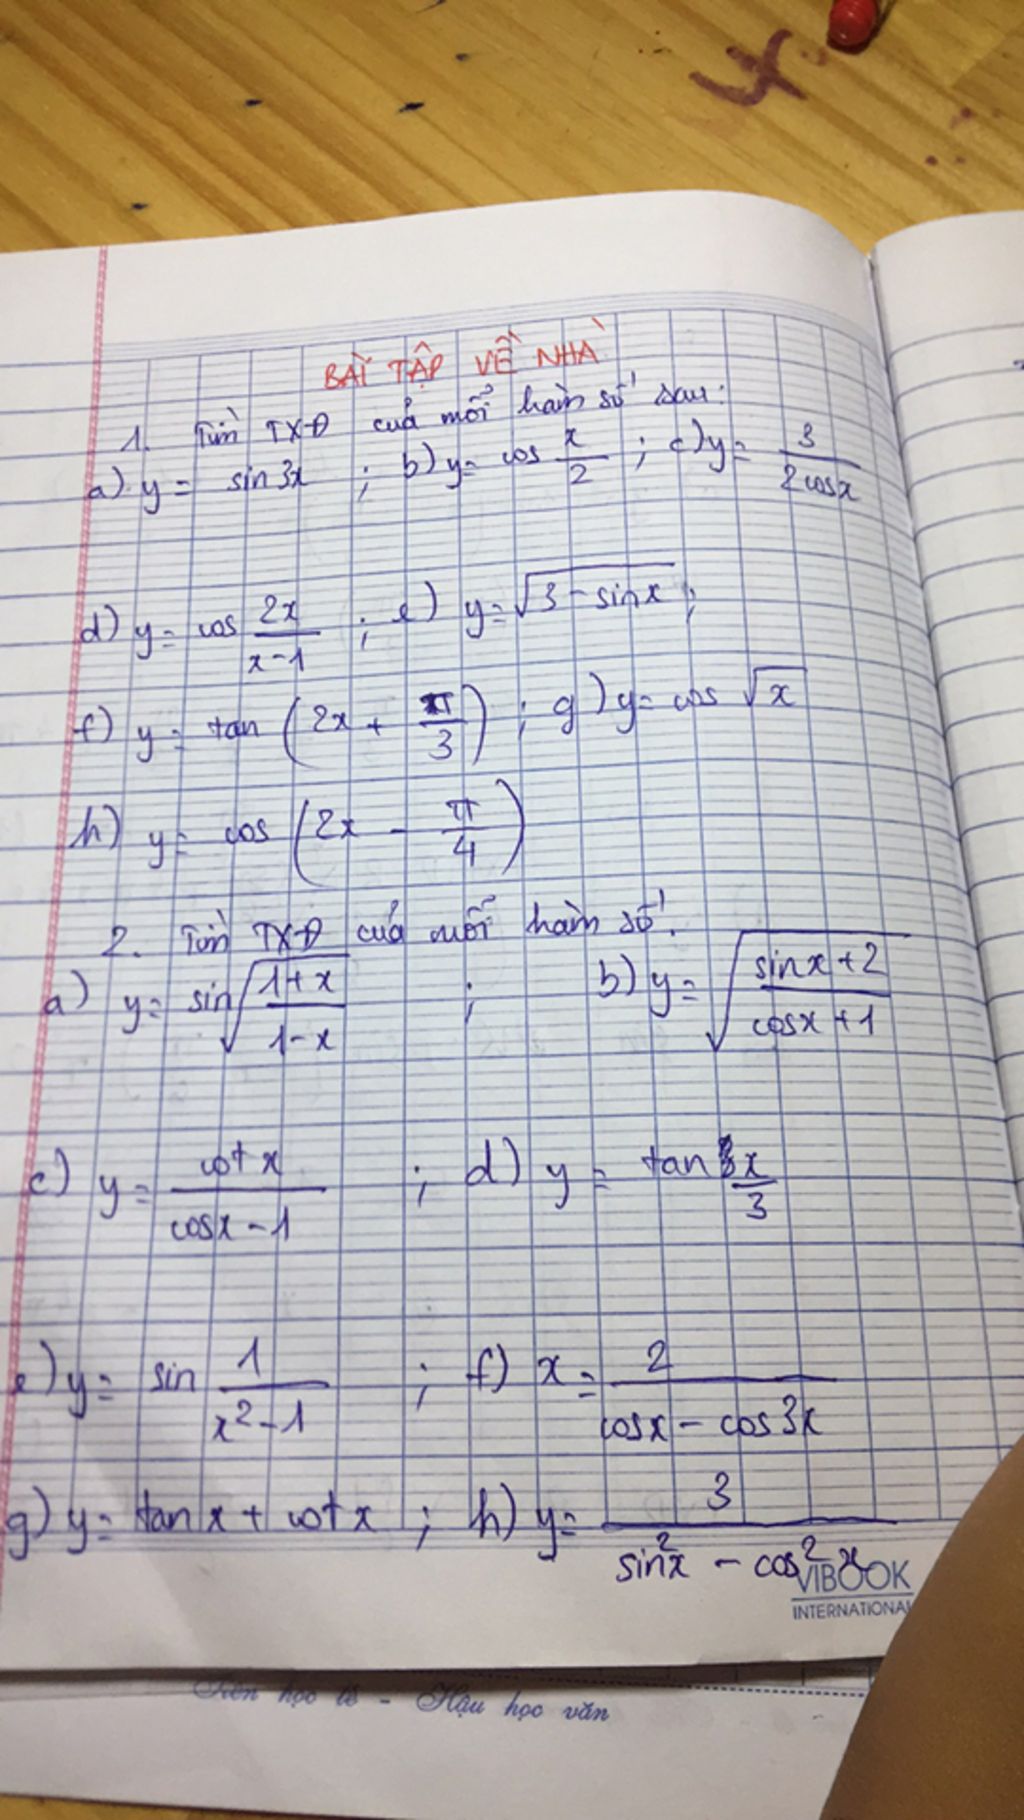 BÀI TẬP VỀ NHÀ
1. Tìm TXĐ của mỗi hàm số sau:
a) y = sin 3x ; b) y = cos x/2 ; c) y = 3/(2cosx)
d) y = cos 2x/(x-1) ; e) y = √(3 - sinx) ;
f) y = tan (2x + π/3) ; g) y = cos √x
h) y = cos (2x - π/4)
2. Tìm TXĐ của mỗi hàm số.
a) y = sin √((1+x)/(1-x)) ; b) y = √((sinx+2)/(cosx+1))
c) y = cot x/(cosx - 1) ; d) y = tan x/3
e) y = sin 1/(x²-1) ; f) x = 2/(cosx - cos3x)
g) y = tan x + cot x ; h) y = 3/(sin²x - cos²x)
VIBOOK
INTERNATIONAL
Tiên học lễ - Hậu học văn